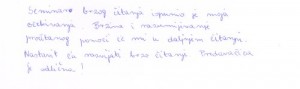 Seminar brzog čitanja ispunio je moja
očekivanja. Brzina i razumijevanje
pročitanog pomoći će mi u daljnjem čitanju.
Nastavit ću marljivo brzo čitanje. Predavačica
je odlična!